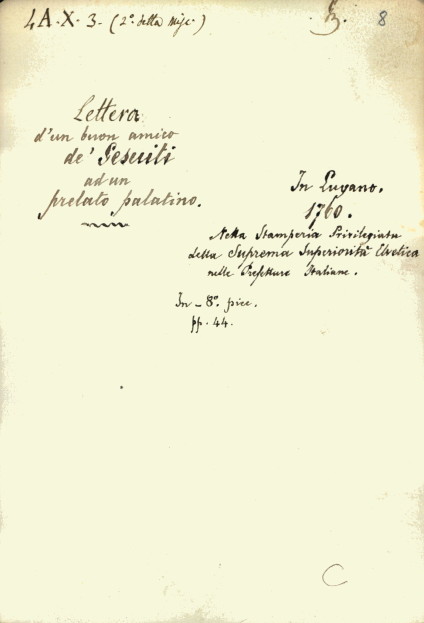 4A.X.3. (2º. della Misc.)
3. 8
Lettera
d'un buon amico
de' Gesuiti
ad un
prelato palatino.
In Lugano.
1760.
Nella Stamperia Privilegiata
della Suprema Superiorità Elvetica
nelle Prefetture Italiane.
In-8º. picc.
pp. 44.
C